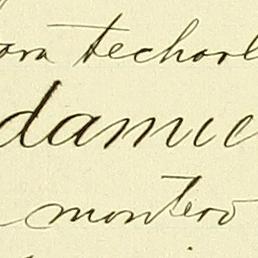 ora techorl
damie
montero